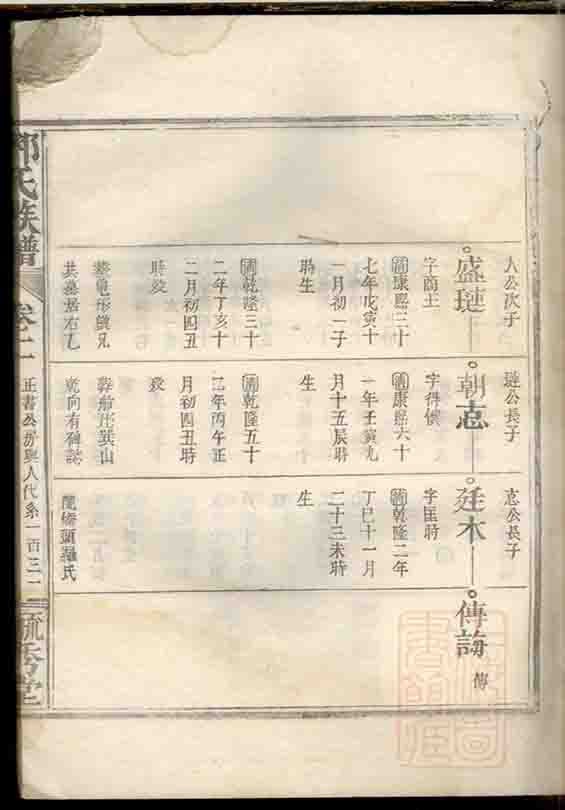 人公次子
盛璉
字商玉
清康熙三十
七年戊寅十
一月初一子
時生
清乾隆三十
二年丁亥十
二月初四丑
時歿
葬
共墓居右乙
璉公長子
朝志
字得
清康熙六十
一年壬寅九
月十五辰時
生
清乾隆五十
一年丙午正
月初四丑時
歿
葬船形巽山
乾向有碑誌
志公長子
廷木
字匡時
清乾隆二年
丁巳十一月
二十三未時
生
橋頭羅氏
傳誨
傳
氏族譜
卷十一
正書公房興人代系一百三十一
毓秀堂